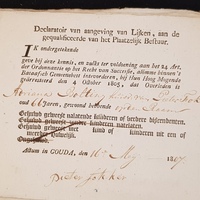 Declaratoir van aangeving van Lijken, aan de
gequalificeerde van het Plaatzelijk Bestuur.
IK ondergetekende
geev bij deze kennis, en zulks ter voldoening aan het 24 Art.
der Ordonnantie op het Recht van Successie, alomme binnen's
Bataafsch Gemeenebest intevoorderen, bij Hun Hoog Mogende
gearresteerd den 4 October 1805, dat Overleden is
Adriana
oud 66 Jaren, gewoond hebbende
Gehuwd geweest nalatende kinderen of verdere descendenten.
Gehuwd geweest zonder kinderen.
Gehuwd geweest met kind of kinderen, uit een of
meerder Huwelijk.
Ongehuwd.
Actum in GOUDA, den 16 May 1807
Pieter Fokker